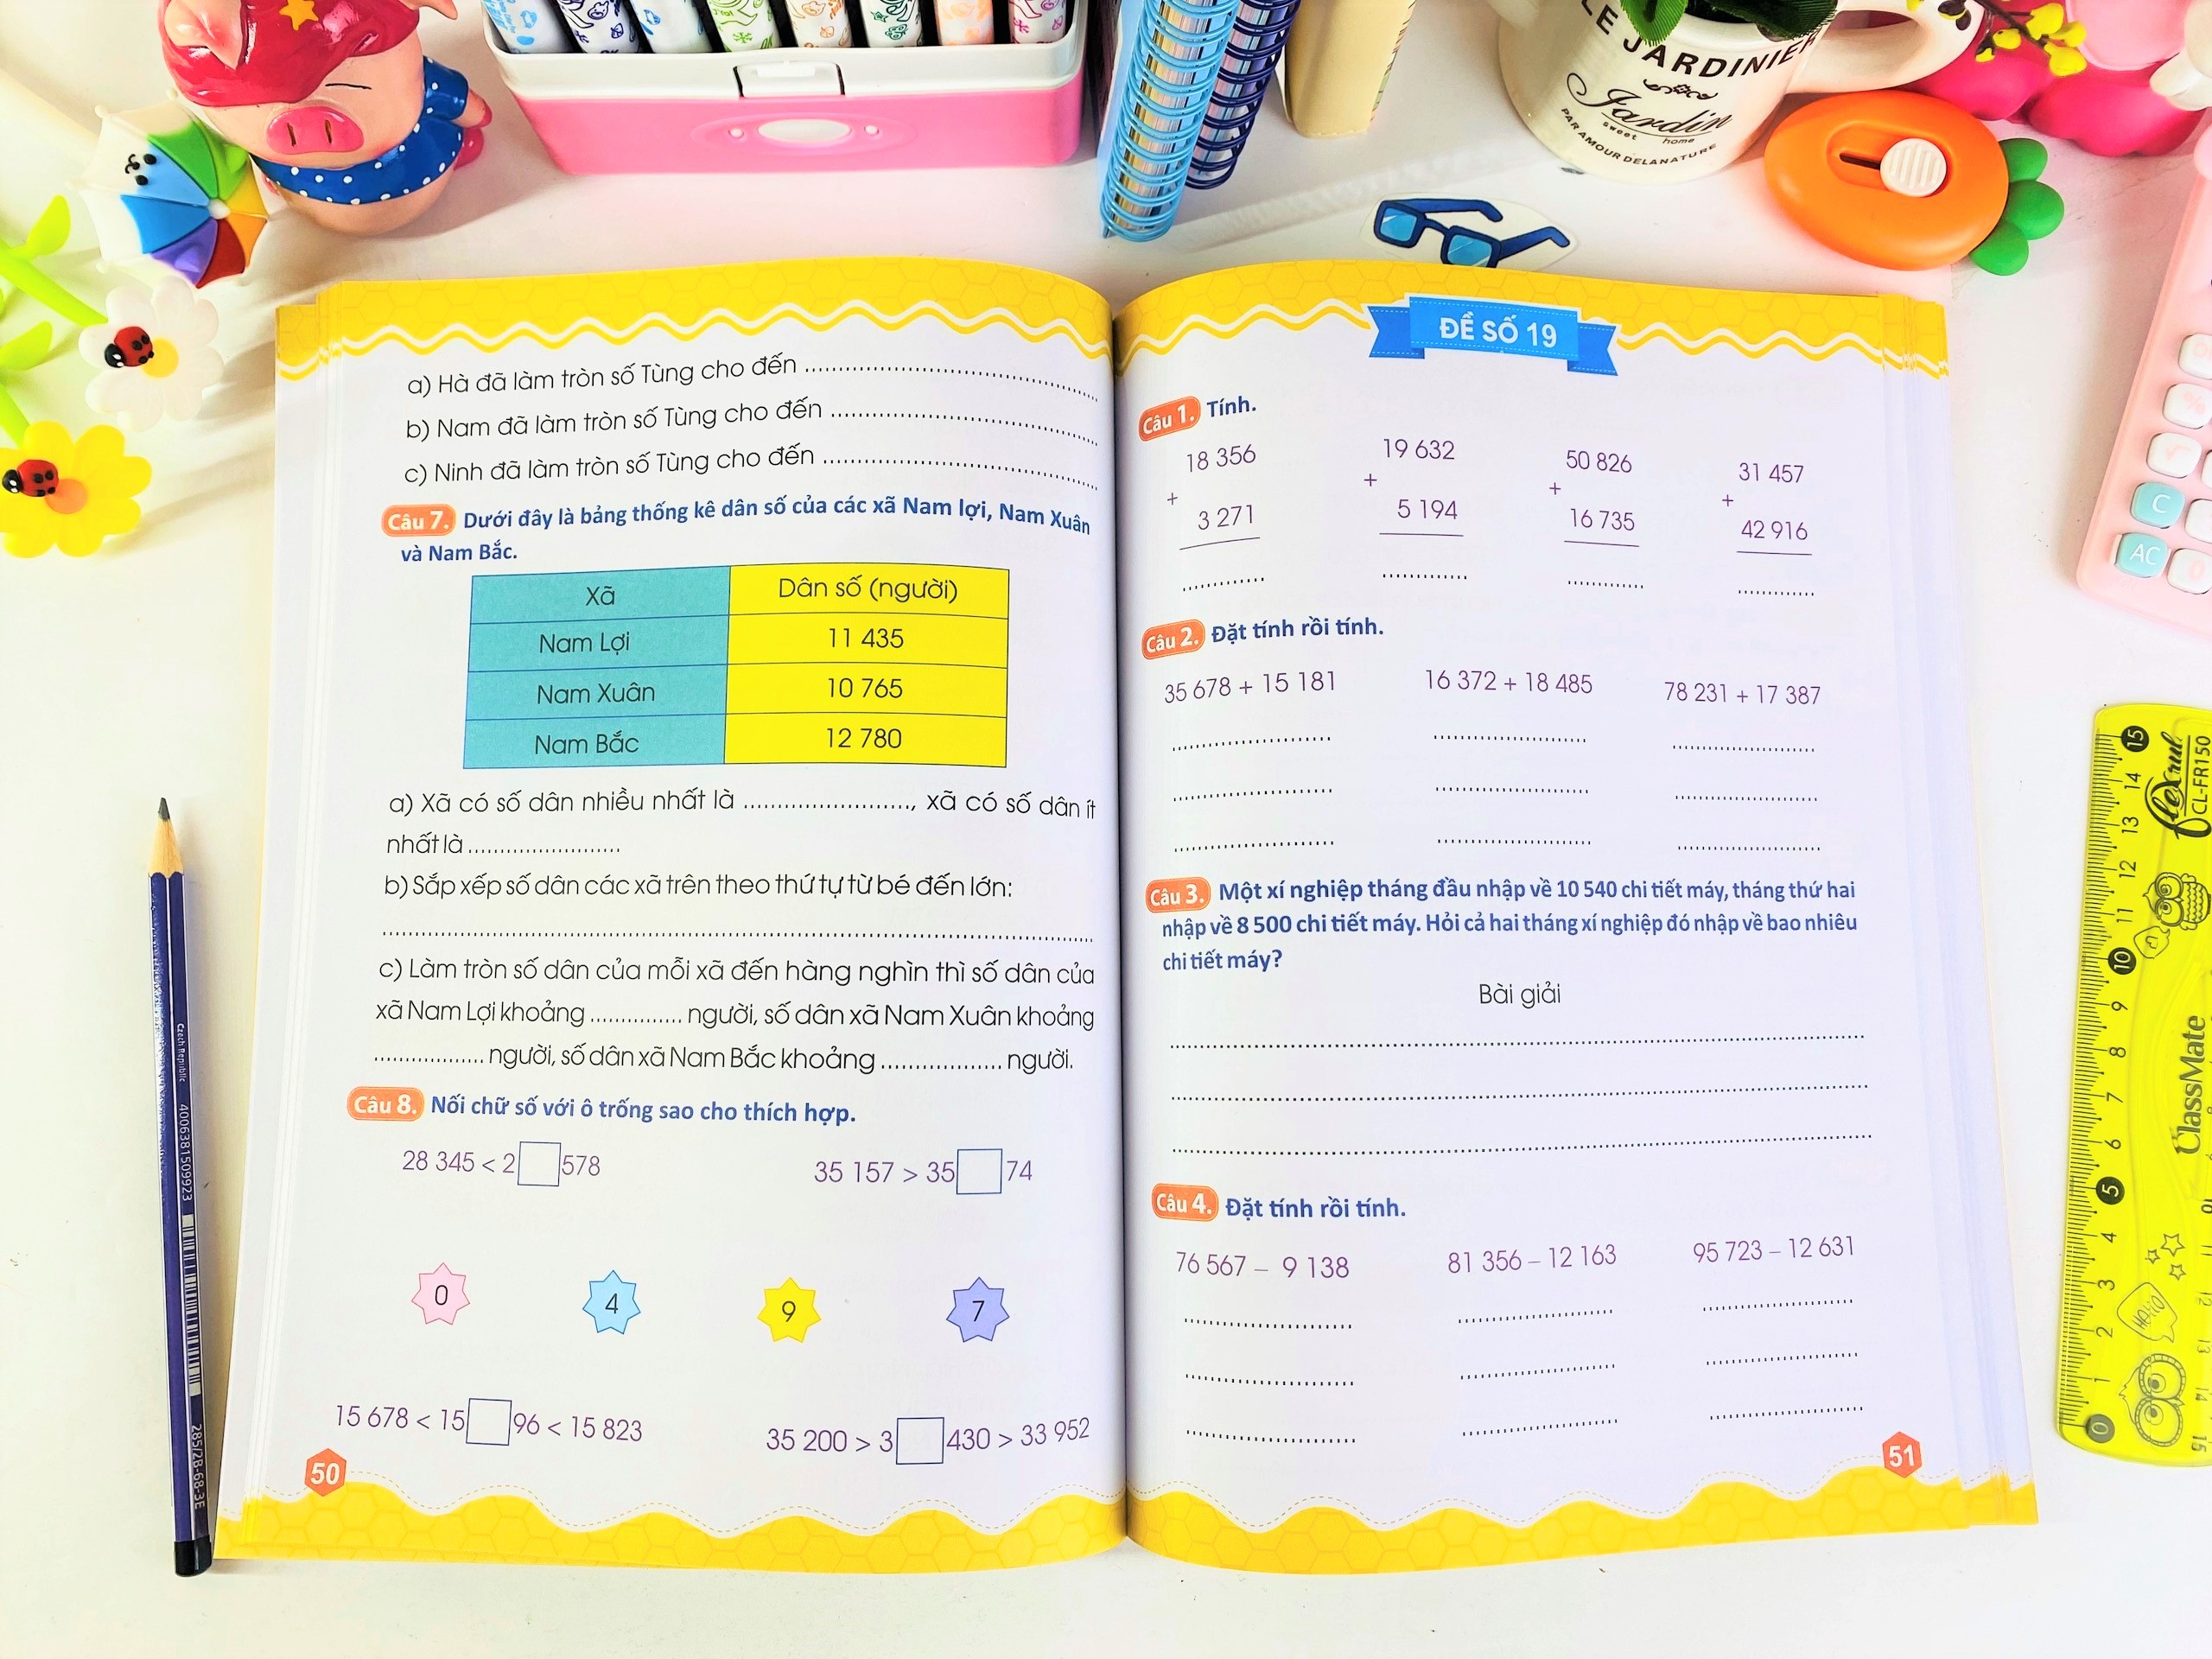 LE JARDINIER
Jardin
sweet home
PAR AMOUR DELANATURE
a) Hà đã làm tròn số Tùng cho đến ........................................
b) Nam đã làm tròn số Tùng cho đến ........................................
c) Ninh đã làm tròn số Tùng cho đến ........................................
Câu 7. Dưới đây là bảng thống kê dân số của các xã Nam lợi, Nam Xuân
và Nam Bắc.
Xã Dân số (người)
Nam Lợi 11 435
Nam Xuân 10 765
Nam Bắc 12 780
a) Xã có số dân nhiều nhất là ........................., xã có số dân ít
nhất là ........................
b) Sắp xếp số dân các xã trên theo thứ tự từ bé đến lớn:
c) Làm tròn số dân của mỗi xã đến hàng nghìn thì số dân của
xã Nam Lợi khoảng ............... người, số dân xã Nam Xuân khoảng
.................. người, số dân xã Nam Bắc khoảng ................... người.
Câu 8. Nối chữ số với ô trống sao cho thích hợp.
28 345 < 2 578 35 157 > 35 74
0 4 9 7
15 678 < 15 96 < 15 823 35 200 > 3 430 > 33 952
50
ĐỀ SỐ 19
Câu 1. Tính.
18 356 19 632 50 826 31 457
+ + + +
3 271 5 194 16 735 42 916
Câu 2. Đặt tính rồi tính.
35 678 + 15 181 16 372 + 18 485 78 231 + 17 387
Câu 3. Một xí nghiệp tháng đầu nhập về 10 540 chi tiết máy, tháng thứ hai
nhập về 8 500 chi tiết máy. Hỏi cả hai tháng xí nghiệp đó nhập về bao nhiêu
chi tiết máy?
Bài giải
Câu 4. Đặt tính rồi tính.
76 567 – 9 138 81 356 – 12 163 95 723 – 12 631
51
Czech Republic 4006381509923 285/2B-68-3E
C
AC
flexrul
CL-FR150
ClassMate
Hello
15 14 13 12 11 10 9 8 7 6 5 4 3 2 1 0